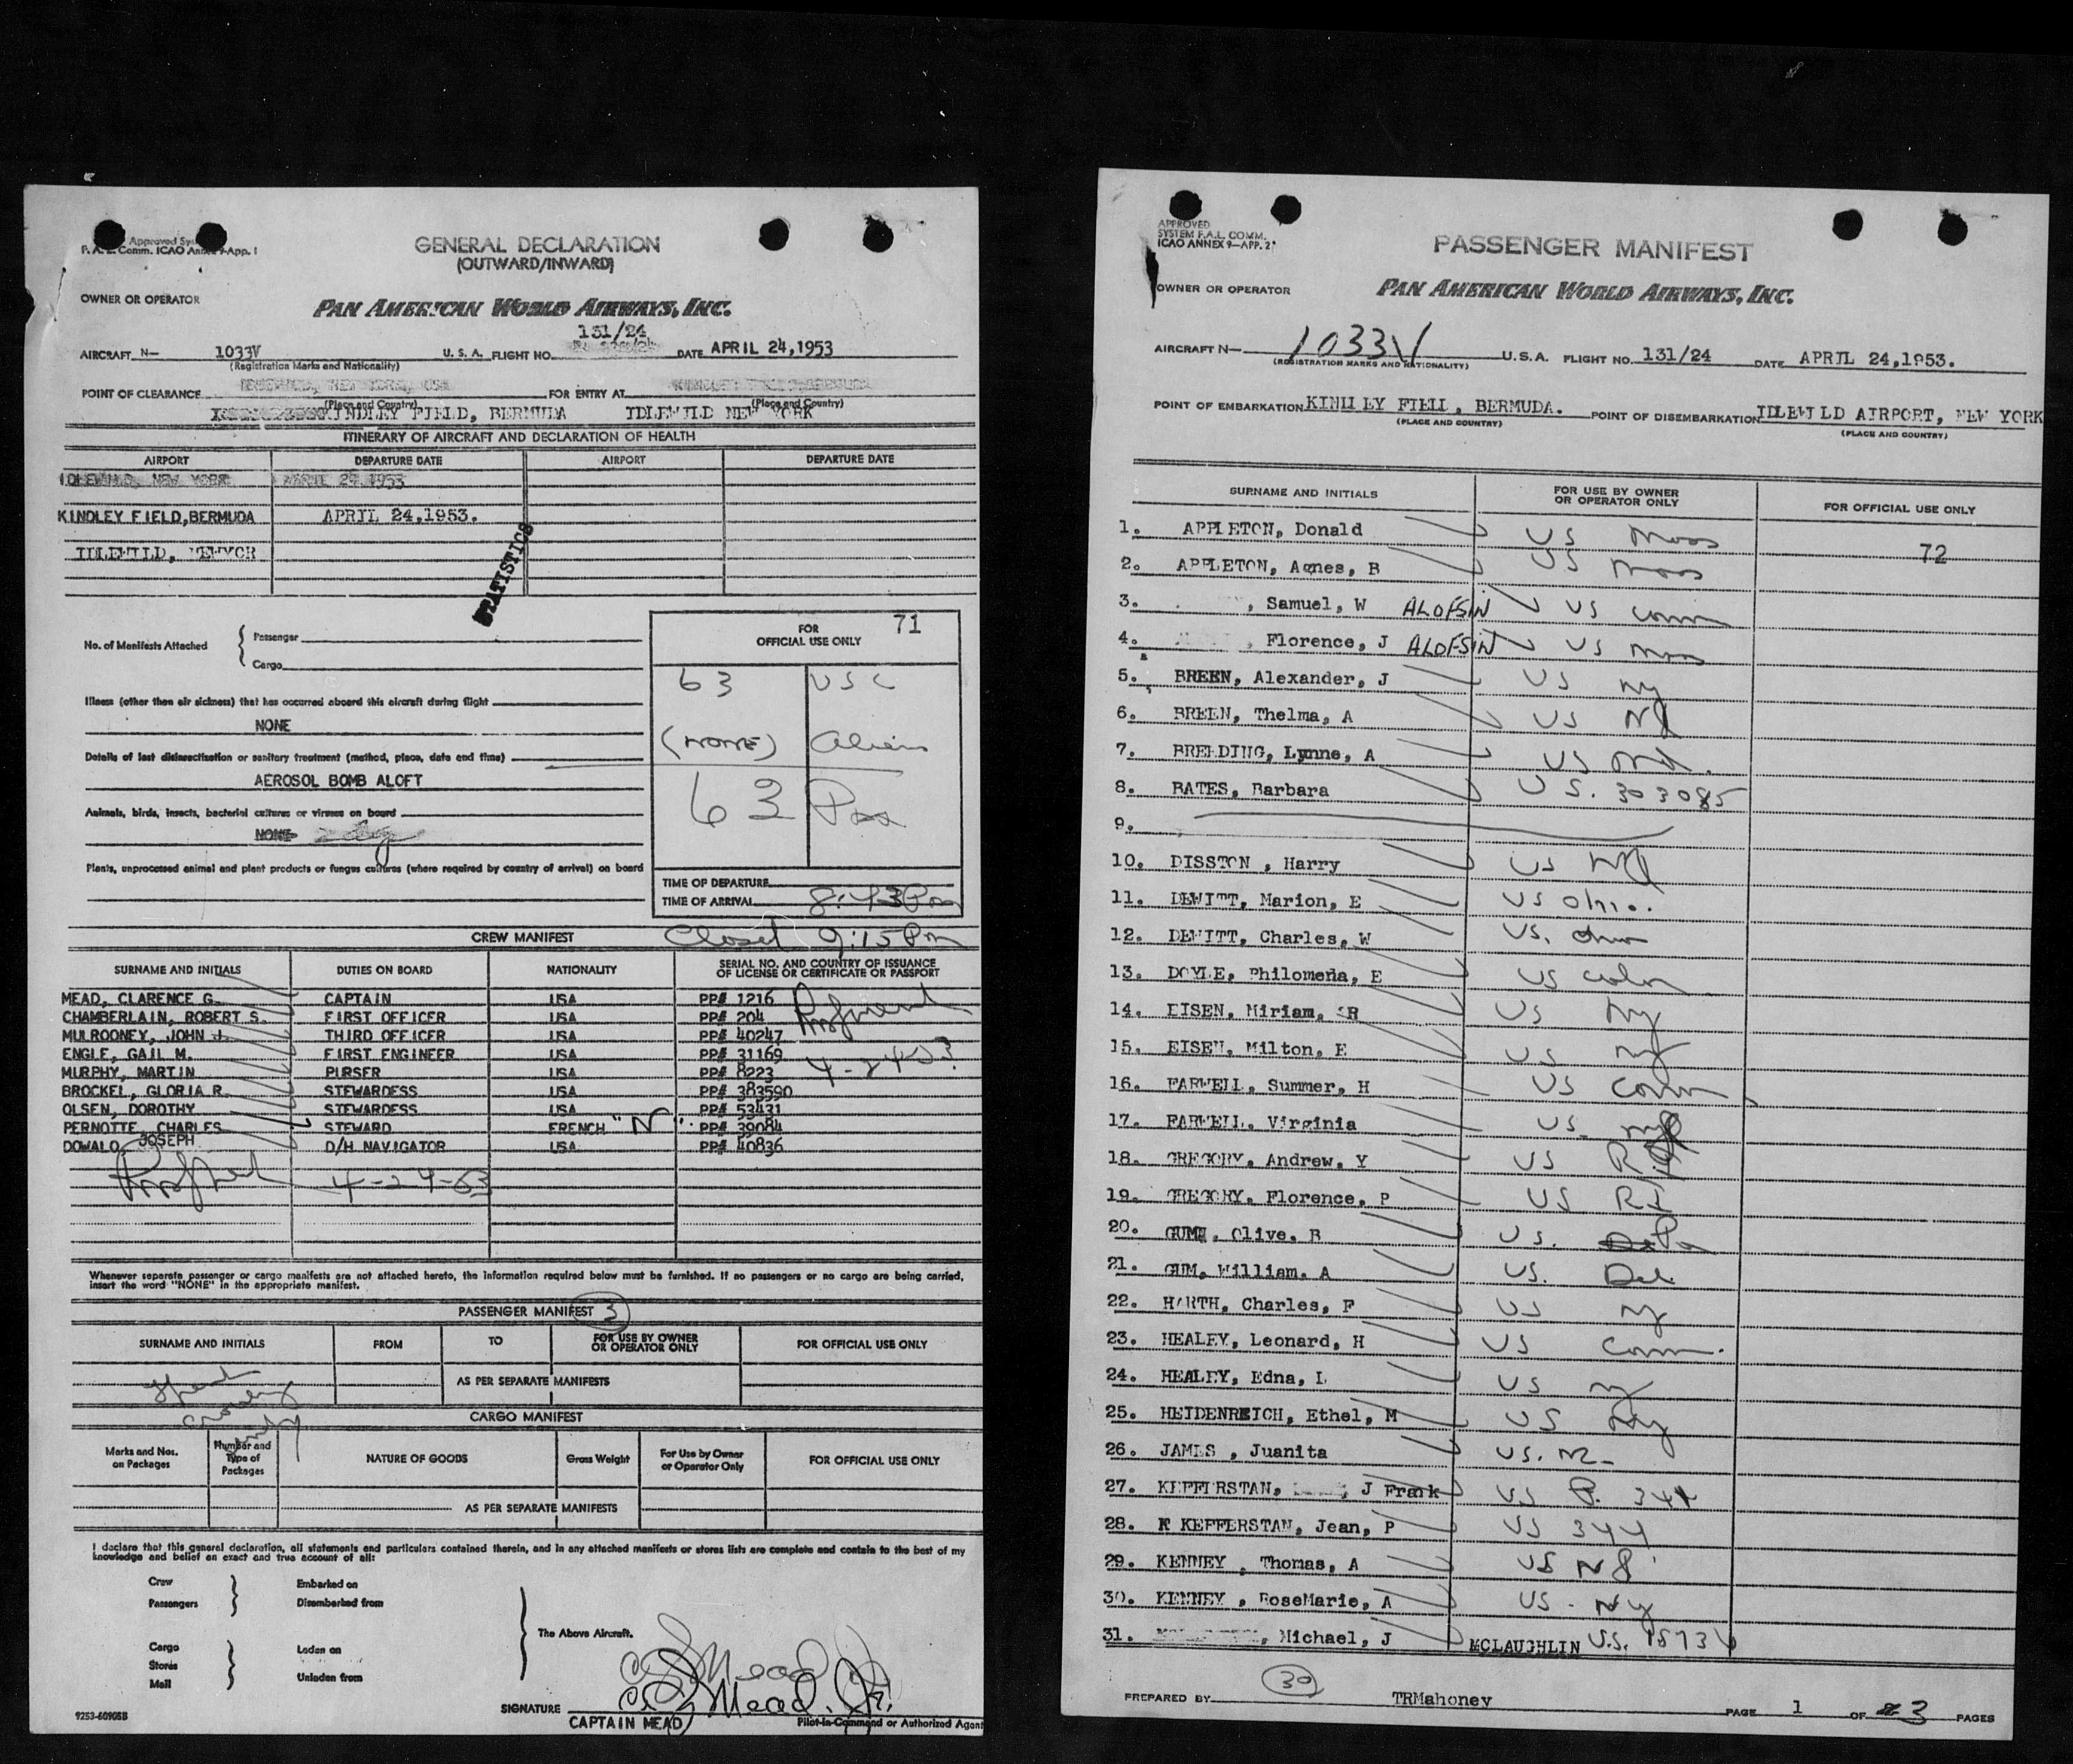 Approved Sys
F. A. L. Comm. ICAO Annex 9-App. 1
GENERAL DECLARATION
(OUTWARD/INWARD)
OWNER OR OPERATOR
PAN AMERICAN WORLD AIRWAYS, INC.
131/24
AIRCRAFT N- 1033V U. S. A. FLIGHT NO. DATE APRIL 24,1953
(Registration Marks and Nationality)
POINT OF CLEARANCE FOR ENTRY AT
(Place and Country) (Place and Country)
KINDLEY FIELD, BERMUDA IDLEWILD NEW YORK
ITINERARY OF AIRCRAFT AND DECLARATION OF HEALTH
AIRPORT DEPARTURE DATE AIRPORT DEPARTURE DATE
IDLEWILD, NEW YORK APRIL 24 1953
KINDLEY FIELD,BERMUDA APRIL 24,1953.
IDLEWILD, NEWYOR
STATISTICS
No. of Manifests Attached
Passenger
Cargo
Illness (other than air sickness) that has occurred aboard this aircraft during flight
NONE
Details of last disinsectization or sanitary treatment (method, place, date and time)
AEROSOL BOMB ALOFT
Animals, birds, insects, bacterial cultures or viruses on board
NONE
Plants, unprocessed animal and plant products or fungus cultures (where required by country of arrival) on board
FOR 71
OFFICIAL USE ONLY
63 USC
(NONE) Aliens
63 Pax
TIME OF DEPARTURE
TIME OF ARRIVAL 8:43Pm
Closed 9:15 Pm
CREW MANIFEST
SURNAME AND INITIALS DUTIES ON BOARD NATIONALITY SERIAL NO. AND COUNTRY OF ISSUANCE
OF LICENSE OR CERTIFICATE OR PASSPORT
MEAD, CLARENCE G. CAPTAIN USA PP# 1216
CHAMBERLAIN, ROBERT S. FIRST OFFICER USA PP# 204
MULROONEY, JOHN J. THIRD OFFICER USA PP# 40247
ENGLE, GAIL M. FIRST ENGINEER USA PP# 31169
4-24-53
MURPHY, MARTIN PURSER USA PP# 8223
BROCKEL, GLORIA R. STEWARDESS USA PP# 383590
OLSEN, DOROTHY STEWARDESS USA PP# 53431
PERNOTTE, CHARLES STEWARD FRENCH "N" PP# 39084
DOWALO, JOSEPH D/H NAVIGATOR USA PP# 40836
4-24-53
Whenever separate passenger or cargo manifests are not attached hereto, the information required below must be furnished. If no passengers or no cargo are being carried,
insert the word "NONE" in the appropriate manifest.
PASSENGER MANIFEST 3
SURNAME AND INITIALS FROM TO FOR USE BY OWNER
OR OPERATOR ONLY FOR OFFICIAL USE ONLY
AS PER SEPARATE MANIFESTS
CARGO MANIFEST
Marks and Nos.
on Packages Number and
Type of
Packages NATURE OF GOODS Gross Weight For Use by Owner
or Operator Only FOR OFFICIAL USE ONLY
AS PER SEPARATE MANIFESTS
I declare that this general declaration, all statements and particulars contained therein, and in any attached manifests or stores lists are complete and contain to the best of my
knowledge and belief an exact and true account of all:
Crew Embarked on
Passengers Disembarked from
The Above Aircraft.
Cargo Laden on
Stores
Mail Unladen from
SIGNATURE CG Mead Jr.
CAPTAIN MEAD Pilot-in-Command or Authorized Agent
9253-60905B
APPROVED
SYSTEM F.A.L. COMM.
ICAO ANNEX 9-APP. 2
PASSENGER MANIFEST
OWNER OR OPERATOR
PAN AMERICAN WORLD AIRWAYS, INC.
AIRCRAFT N- 1033V U.S.A. FLIGHT NO. 131/24 DATE APRIL 24,1953.
(REGISTRATION MARKS AND NATIONALITY)
POINT OF EMBARKATION KINDLEY FIELD, BERMUDA. POINT OF DISEMBARKATION IDLEWILD AIRPORT, NEW YORK
(PLACE AND COUNTRY) (PLACE AND COUNTRY)
SURNAME AND INITIALS FOR USE BY OWNER
OR OPERATOR ONLY FOR OFFICIAL USE ONLY
1. APPLETON, Donald US Mass
72
2. APPLETON, Agnes, B US Mass
3. , Samuel, W ALOFSIN US Conn
4. , Florence, J ALOFSIN US Mass
5. BREEN, Alexander, J US NY
6. BREEN, Thelma, A US NJ
7. BREEDING, Lynne, A US Md.
8. BATES, Barbara U S. 303085
9.
10. DISSTON , Harry US NJ
11. DEWITT, Marion, E US Ohio.
12. DEWITT, Charles, W US. Ohio
13. DOYLE, Philomena, E US Colon
14. EISEN, Miriam, R US NY
15. EISEN, Milton, E US NY
16. FARWELL, Summer, H US Conn
17. FARWELL, Virginia US
18. GREGORY, Andrew, Y US RI
19. GREGORY, Florence, P US RI
20. GUM, Olive, B US. Pa
21. GUM, William, A US. Del
22. HARTH, Charles, F US NY
23. HEALEY, Leonard, H US Conn.
24. HEALEY, Edna, L US NY
25. HEIDENREICH, Ethel, M US NY
26. JAMES , Juanita US.
27. KEFFERSTAN, J Frank US P. 344
28. K KEFFERSTAN, Jean, P US 344
29. KENNEY , Thomas, A US NY
30. KENNEY , RoseMarie, A US - NY
31. , Michael, J MCLAUGHLIN U.S. 15734
30
PREPARED BY TRMahoney PAGE 1 OF 3 PAGES